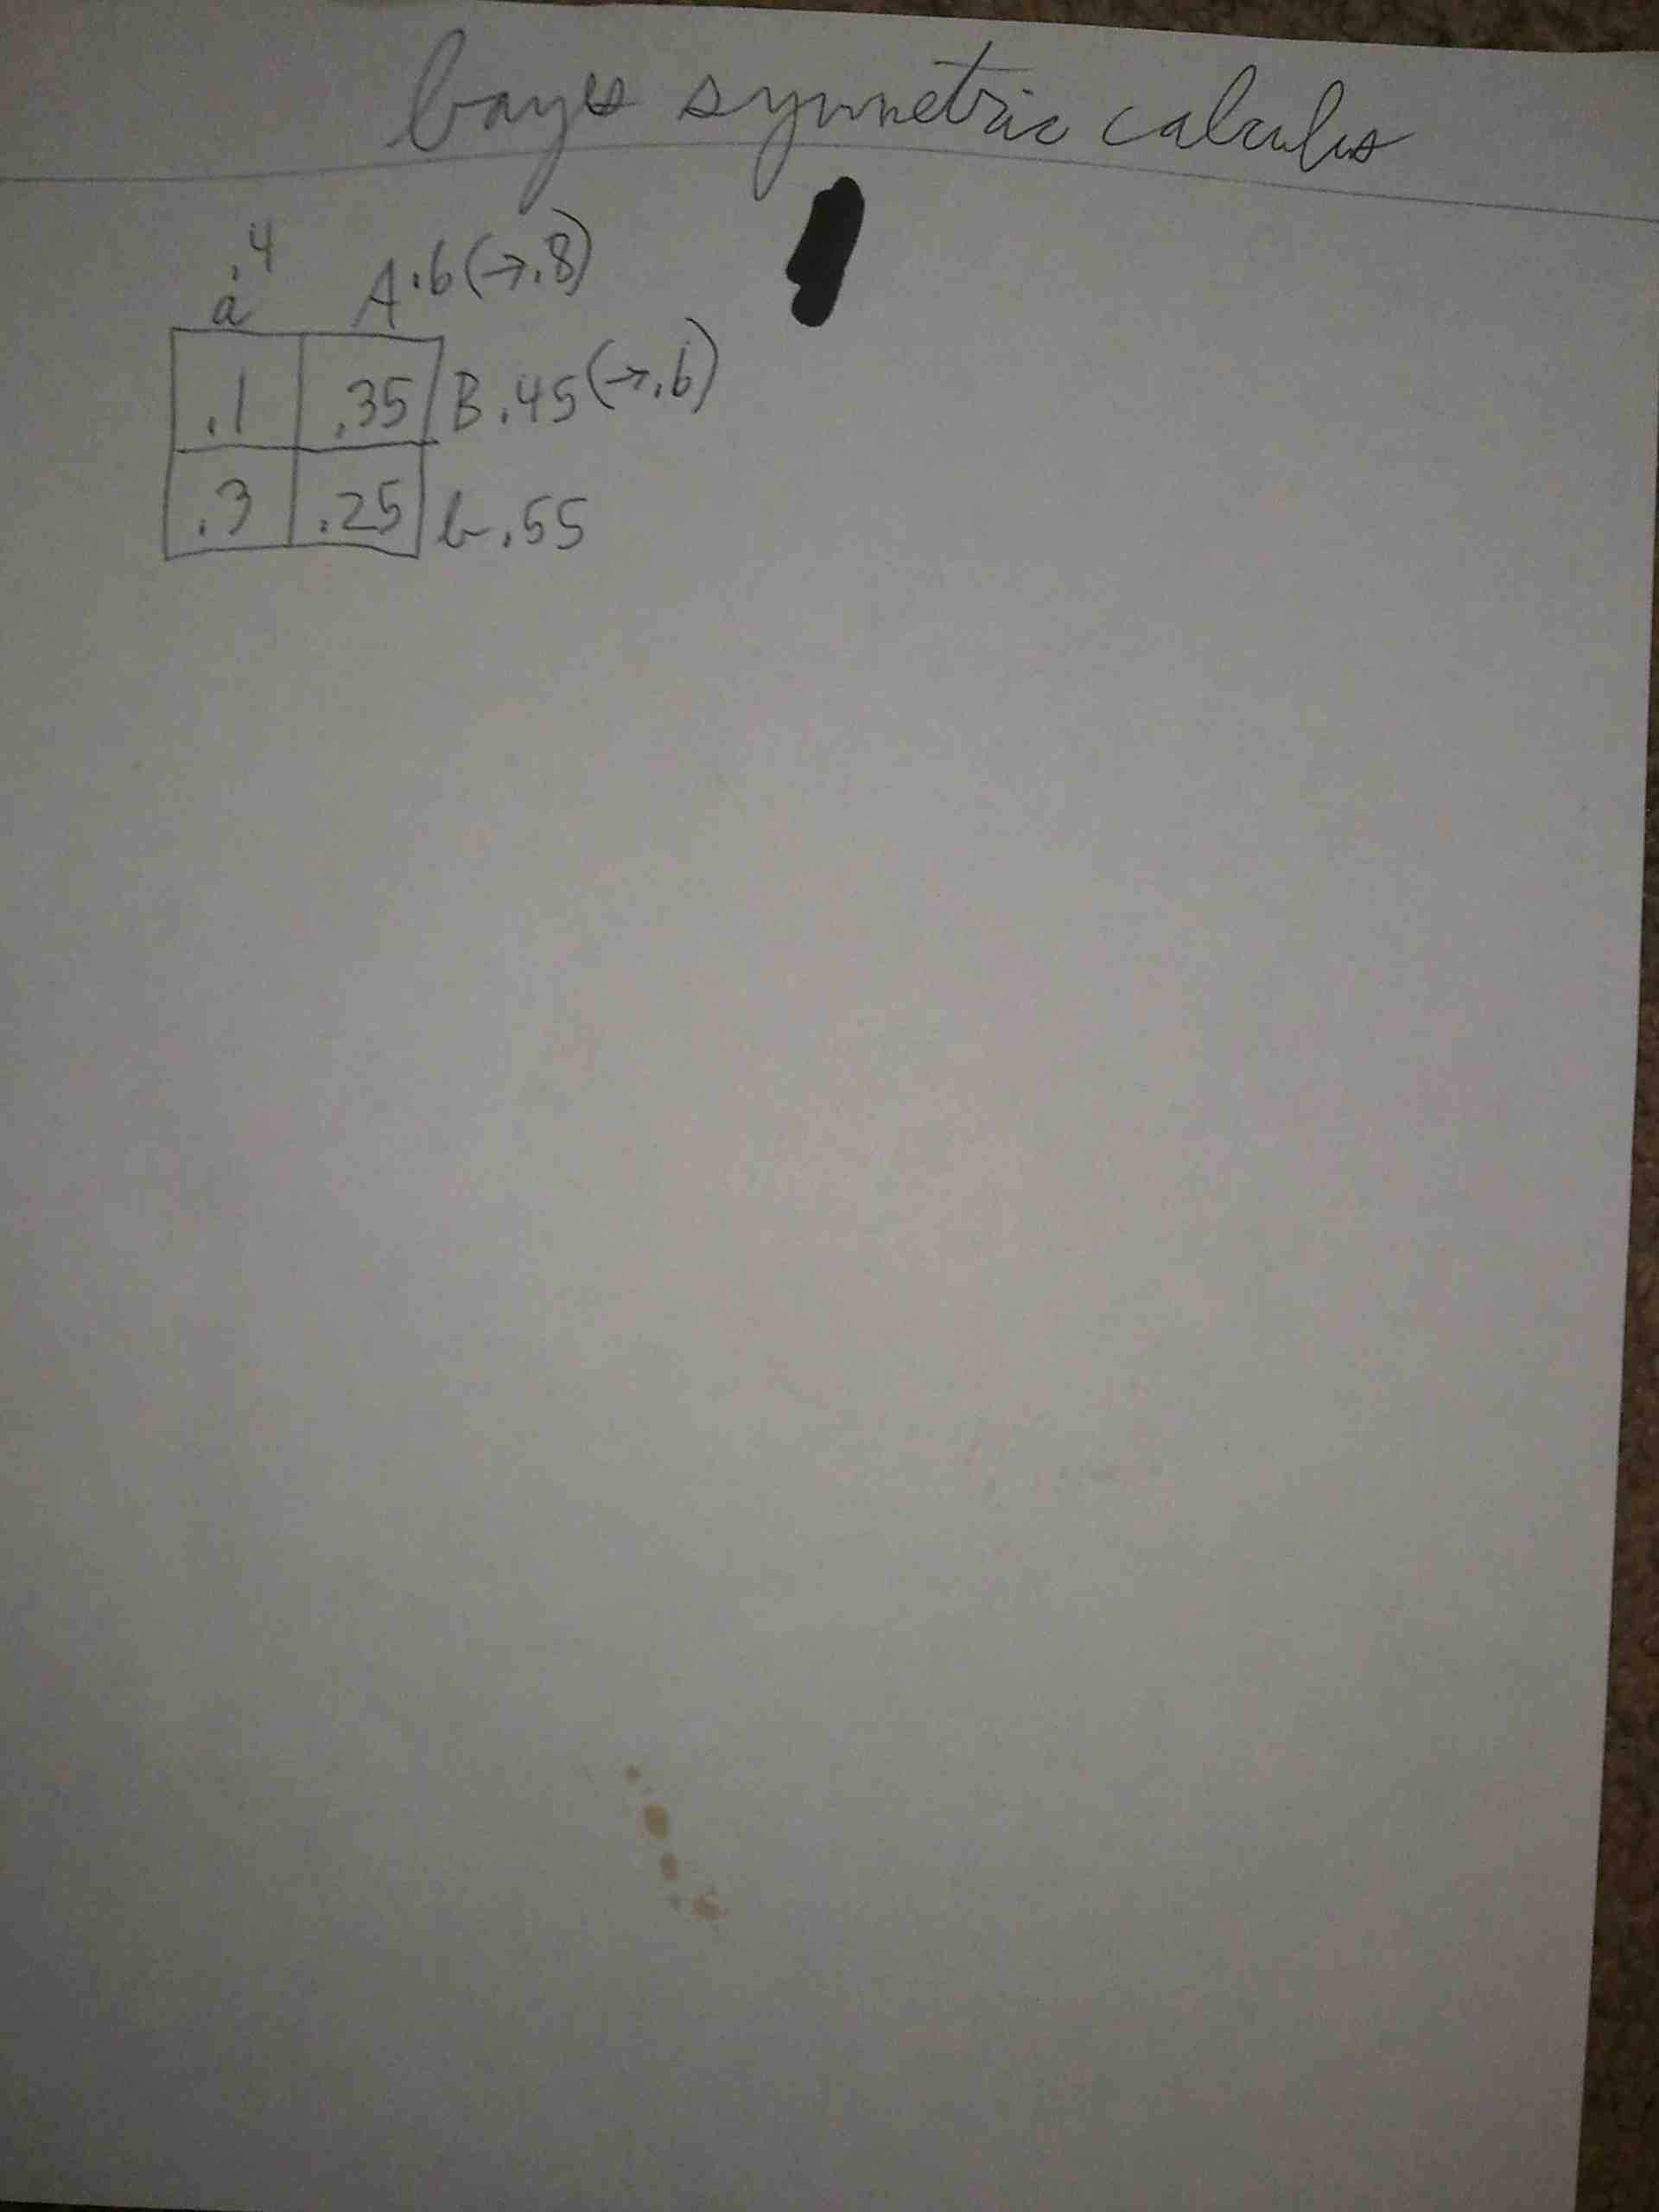 bayes symmetric calculus
.4
a A .6 (→.8)
.1 .35 B .45 (→.6)
.3 .25 b .55